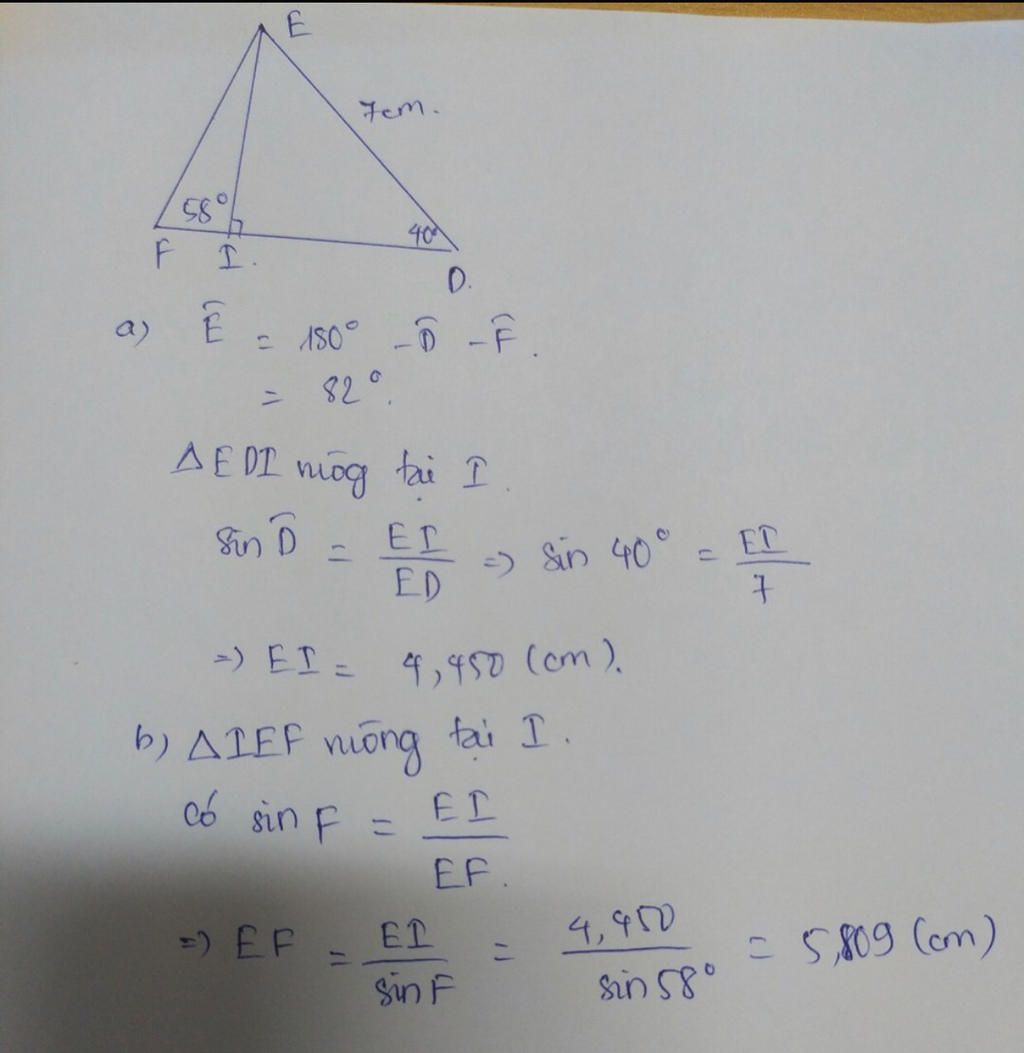 E
7cm.
58°
40°
F I.
D.
a) Ê = 180° - D̂ - F̂.
= 82°.
ΔEDI vuông tại I.
sin D̂ = EI/ED => sin 40° = EI/7
=> EI = 4,450 (cm).
b) ΔIEF vuông tại I.
có sin F = EI/EF.
=> EF = EI/sin F = 4,450/sin 58° = 5,809 (cm)